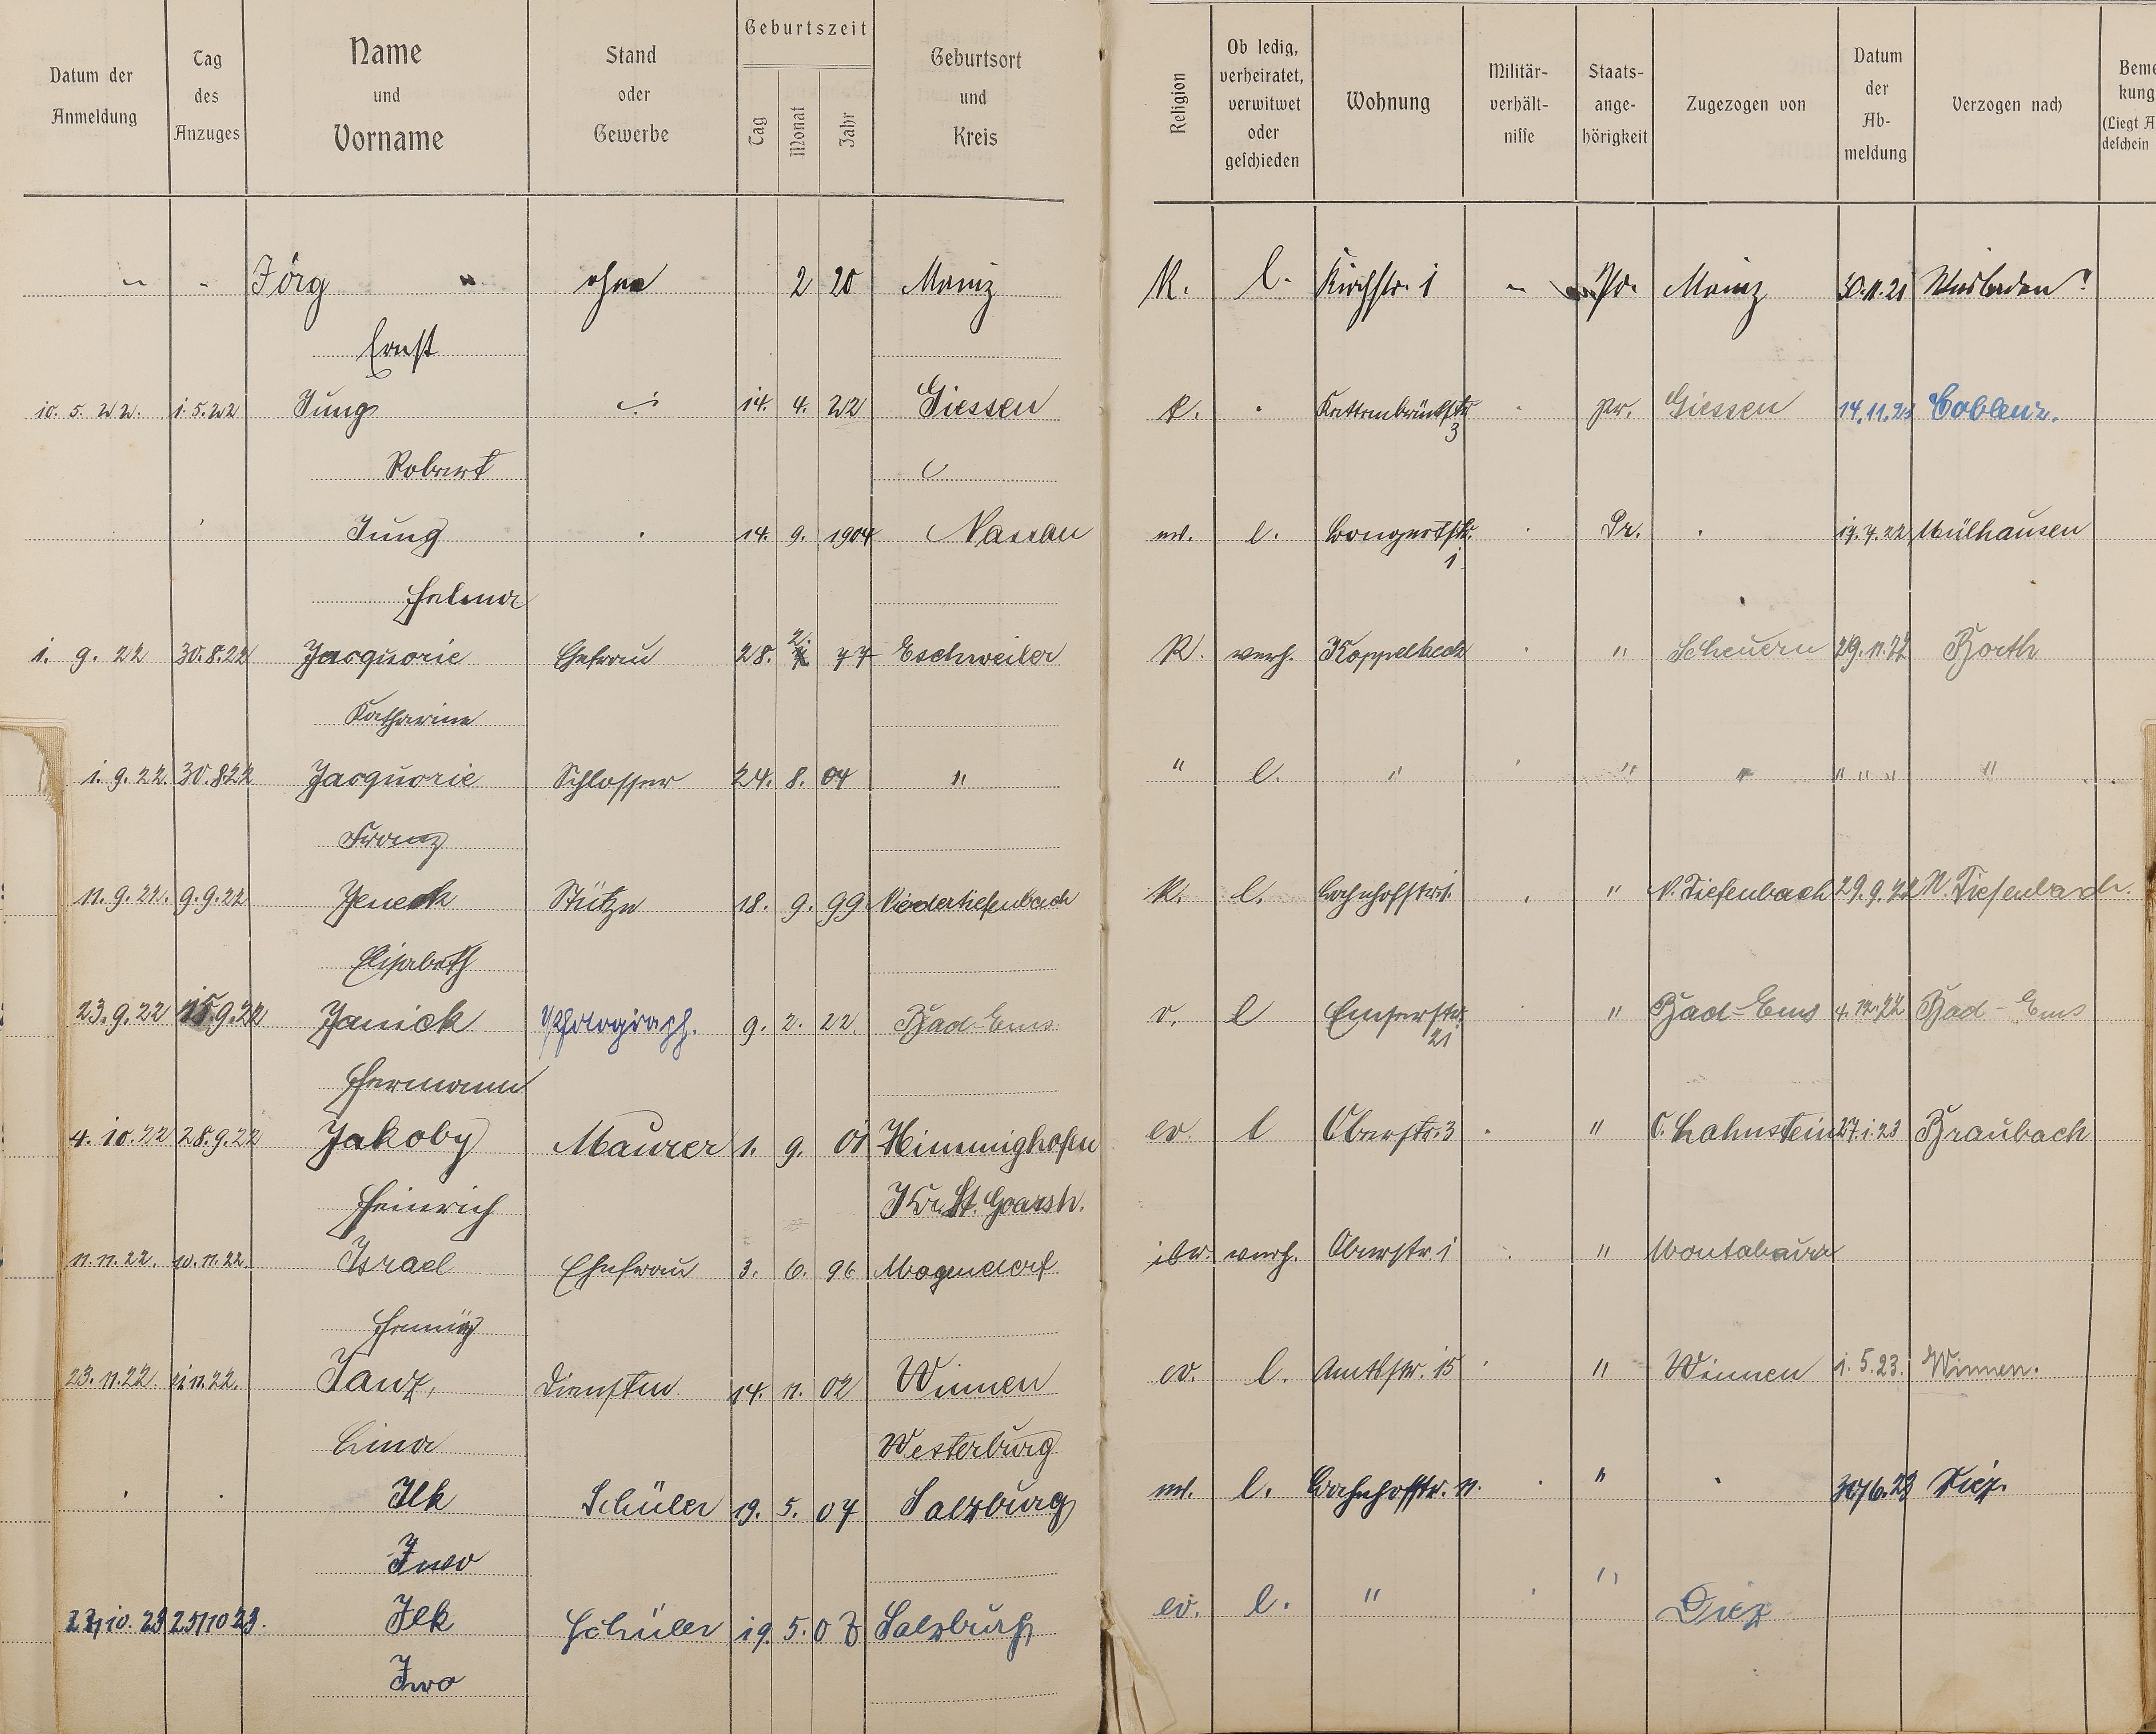 Datum der Anmeldung | Tag des Anzuges | Name und Vorname | Stand oder Gewerbe | Geburtszeit Tag Monat Jahr | Geburtsort und Kreis | Religion | Ob ledig, verheiratet, verwitwet oder geschieden | Wohnung | Militär-verhält-nisse | Staats-ange-hörigkeit | Zugezogen von | Datum der Ab-meldung | Verzogen nach | Beme kung (Liegt A deschein
" - Jörg " ohne 2 20 Mainz K. l. Kirchstr. 1 " Pr. Mainz 30.11.21 Wiesbaden?
Ernst
10. 5. 22. 1. 5. 22 Jung 14. 4. 22 Giessen K. Pr. Giessen 14.11.23 Coblenz.
3
Robert
Jung 14. 9. 1904 Nassau ev. l. Bongertstr. Pr. Mülhausen
1
Helma
1. 9. 22 30.8.22 Jacquorie Ehefrau 28. 2. 77 Eschweiler K. verh. Koppelheck " Scheuern 29.11.22 Borth
Katharine
1. 9. 22. 30.8.22 Jacquorie Schlosser 24. 8. 04 " " l. " " " " " " "
Franz
11. 9. 22. 9.9.22 Jeneck Stütze 18. 9. 99 Niedertiefenbach K. l. Bahnhofstr. 1. " N. Tiefenbach 29.9.22 N. Tiefenbach.
Elisabeth
23. 9. 22 15.9.22 Janick Photograph. 9. 2. 22. Bad-Ems v. l Emserstr. " Bad-Ems 4.12.22 Bad-Ems
21
Hermann
4. 10. 22 28.9.22 Jakoby Maurer 1. 9. 01 Himmighofen ev. l Oberstr. 3 " O. Lahnstein 27.1.23 Braubach
Heinrich Kr. St. Goarsh.
11. 11. 22. 10. 11. 22. Israel Ehefrau 3. 6. 96 Mogendorf isr. verh. Oberstr. 1 " Montabaur
23. 11. 22. 21.11.22. Janz, 14. 11. 02 Winnen ev. l. Amtsstr. 15 " Winnen 1. 5. 23. Winnen.
Lina Westerburg
Ilk Schüler 19. 5. 07 Salzburg ev. l. Bahnhofstr. 11. " 30/6.23 Diez.
Iwo
10. 23 25/10 23. Ilk Schüler 19. 5. 07 Salzburg ev. l. " " Diez
Iwo